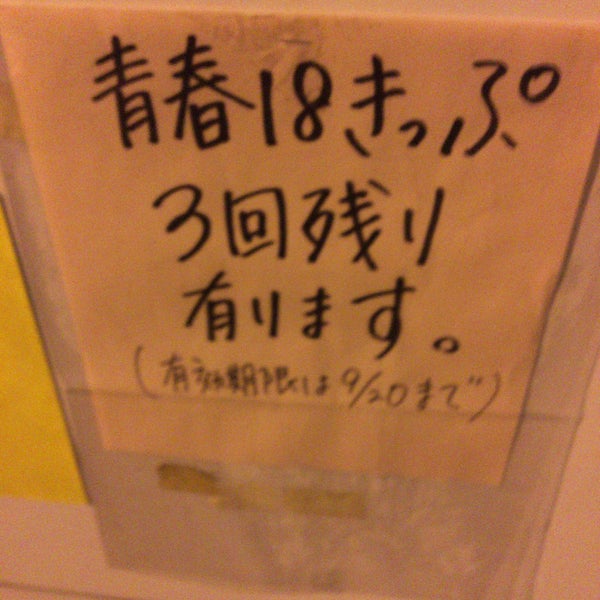 青春18きっぷ
3回残り
有ります。
(有効期限は9/20まで)